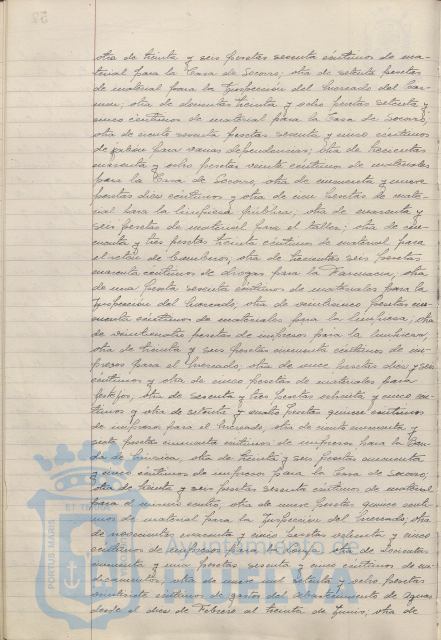 otra de treinta y seis pesetas sesenta céntimos de ma-
terial para la Casa de Socorro; otra de setenta pesetas
de material para la Inspección del Mercado del Car-
men; otra de doscientas treinta y ocho pesetas setenta y
cinco céntimos de material para la Casa de Socorro,
otra de ciento sesenta pesetas sesenta y cinco céntimos
de jabón para varias dependencias, otra de trescientas
cuarenta y ocho pesetas veinte céntimos de materiales
para la Casa de Socorro, otra de cincuenta y nueve
pesetas diez céntimos y otra de once pesetas de mate-
rial para la limpieza pública, otra de cuarenta y
seis pesetas de material para el taller; otra de cin-
cuenta y tres pesetas treinta céntimos de material para
el retén de bomberos, otra de trescientas seis pesetas
cuarenta céntimos de drogas para la Farmacia, otra
de una peseta sesenta céntimos de materiales para la
Inspección del Mercado, otra de veinticinco pesetas cin-
cuenta céntimos de materiales para la limpieza, otra
de veinticuatro pesetas de impresos para la limpieza,
otra de treinta y seis pesetas cincuenta céntimos de im-
presos para el Mercado, otra de once pesetas diez y seis
céntimos y otra de cinco pesetas de materiales para
festejos, otra de sesenta y tres pesetas ochenta y cinco cén-
timos y otra de setenta y cuatro pesetas quince céntimos
de impresos para el Mercado, otra de ciento cincuenta y
siete pesetas cincuenta céntimos de impresos para la Ban-
da de Música, otra de treinta y seis pesetas cuarenta
y cinco céntimos de impresos para la Casa de Socorro;
otra de treinta y seis pesetas sesenta céntimos de material
para el mismo centro, otra de nueve pesetas quince cénti-
mos de material para la Inspección del Mercado, otra
de novecientas cuarenta y cinco pesetas ochenta y cinco
céntimos de impresos para el otra de doscientas
cincuenta y una pesetas sesenta y cinco céntimos de me-
dicamentos, otra de nueve mil setenta y ocho pesetas
céntimos de gastos del abastecimiento de aguas
desde el diez de Febrero al treinta de Junio, otra de
Ayuntamiento de
HUELVA
PORTUS MARIS
ET TERRAE